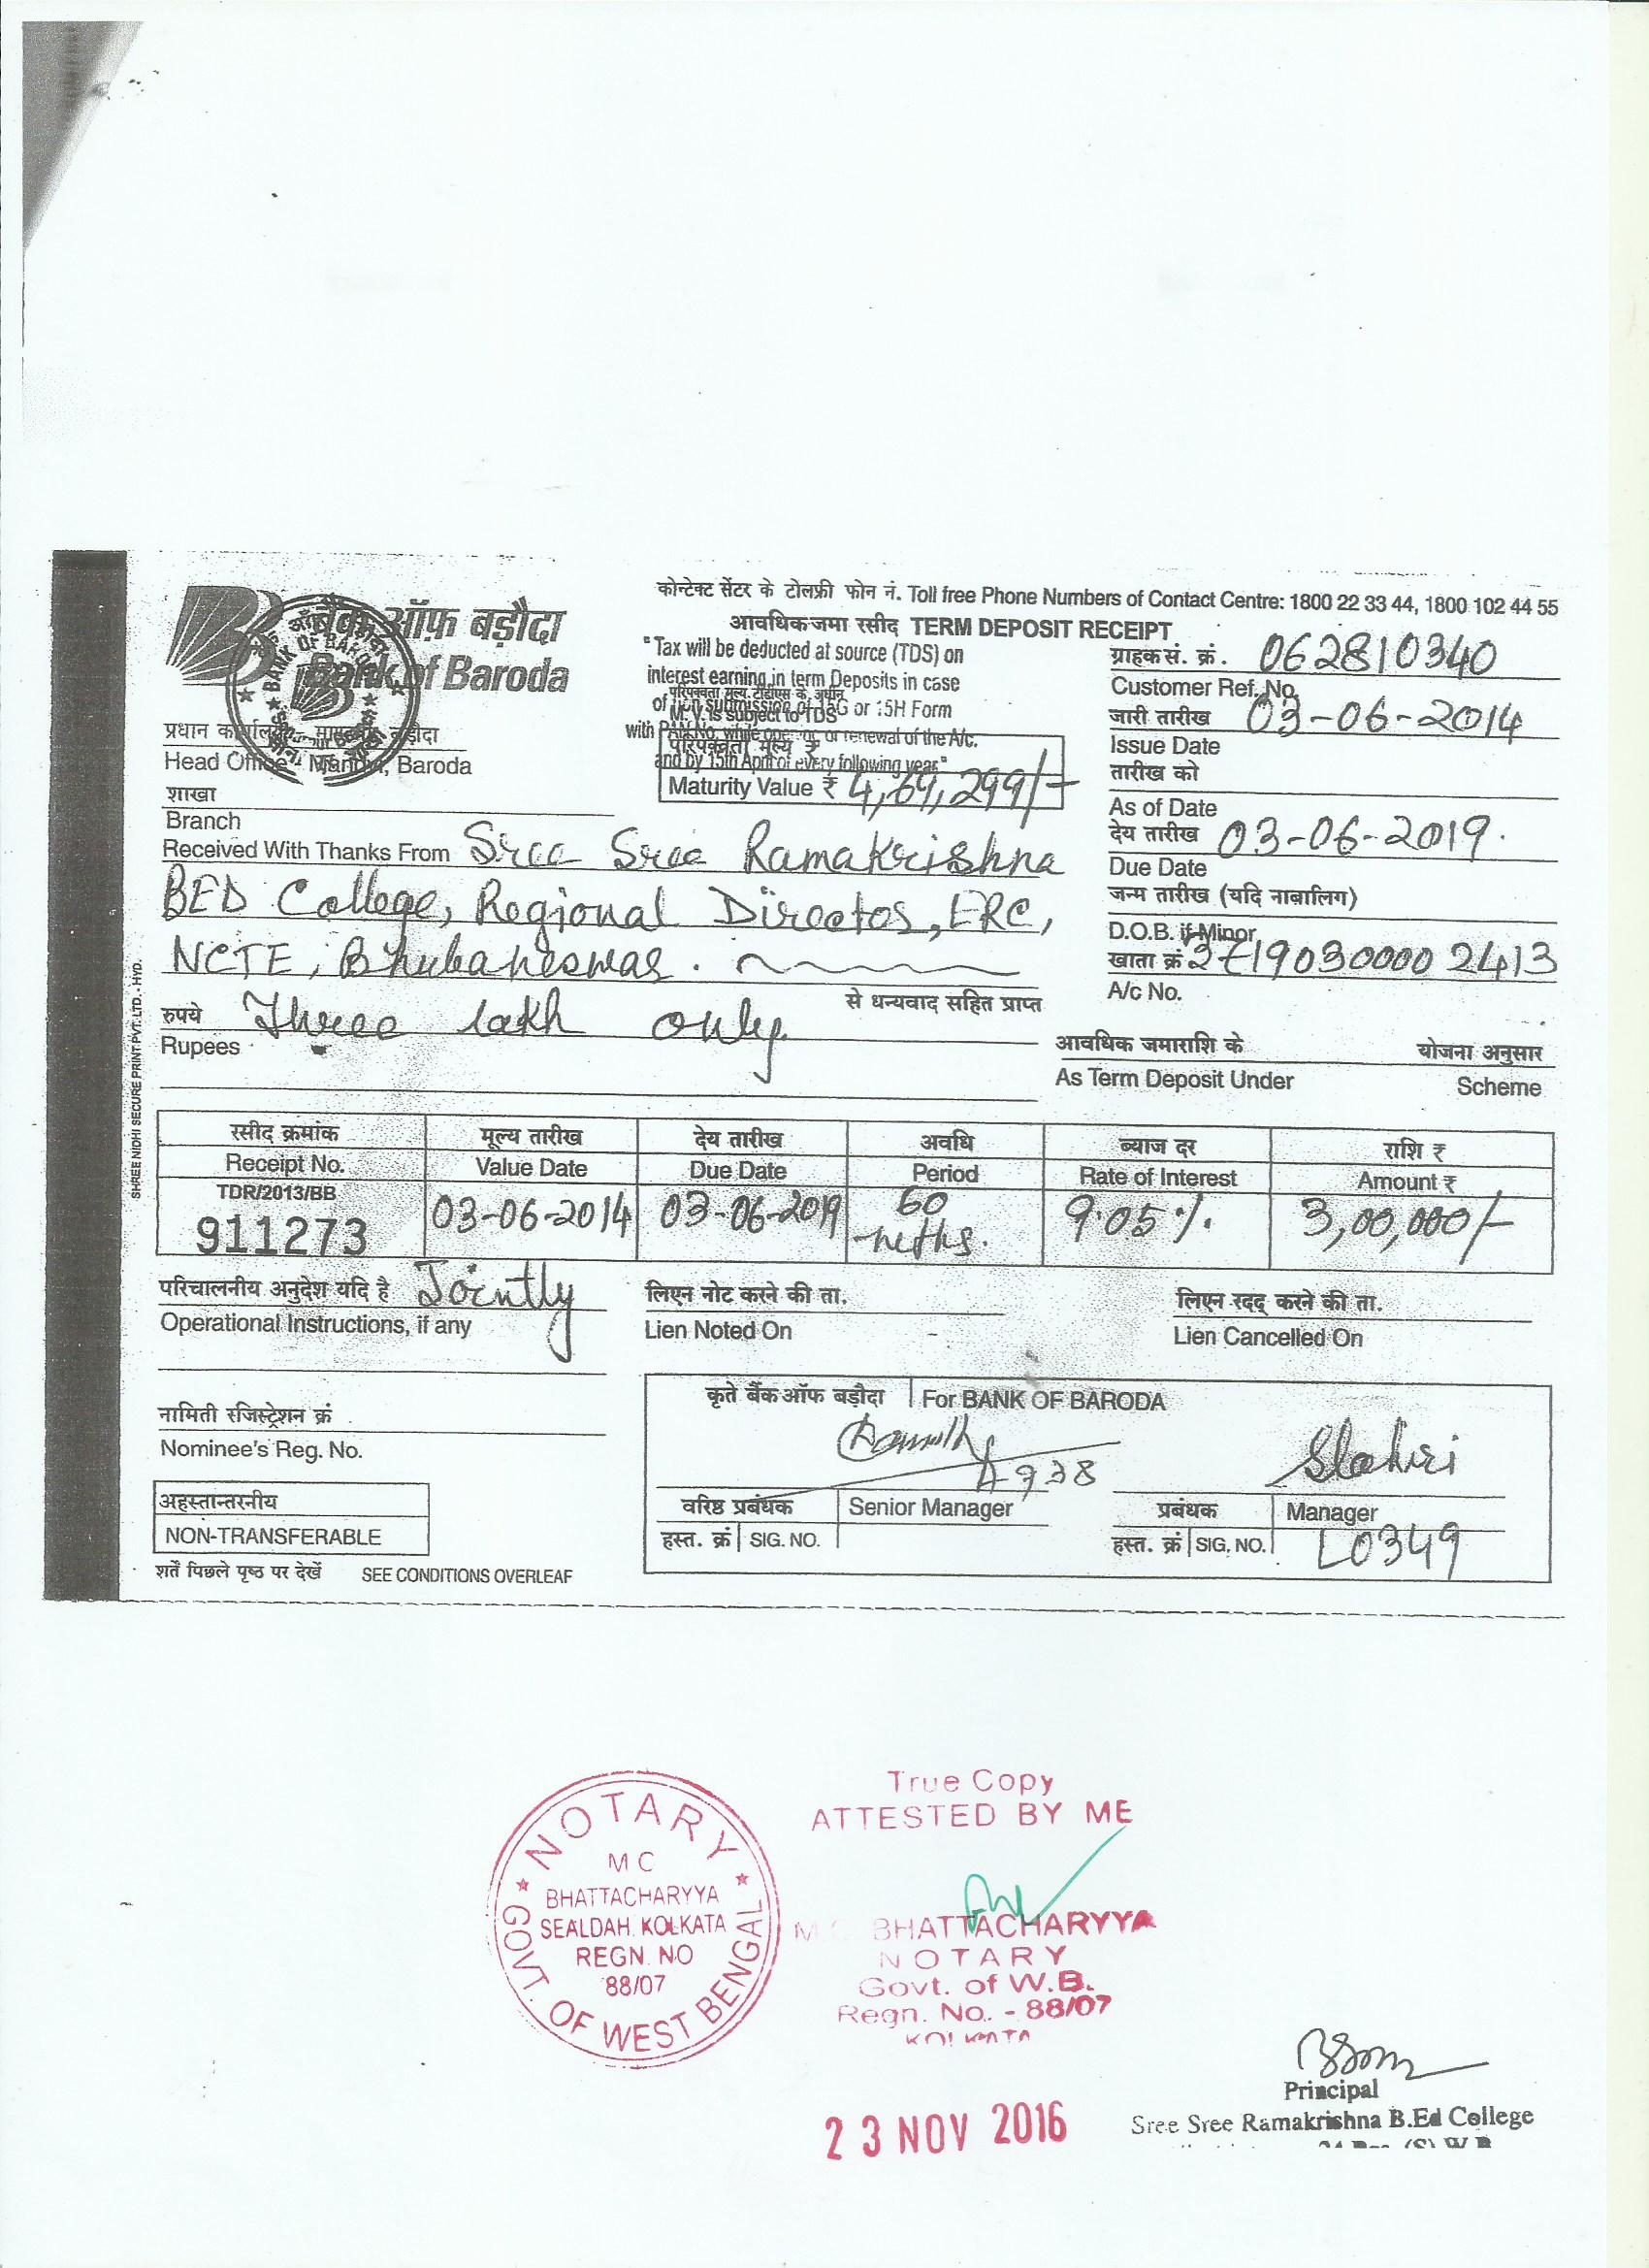 कोन्टेक्ट सेंटर के टोलफ्री फोन नं. Toll free Phone Numbers of Contact Centre: 1800 22 33 44, 1800 102 44 55
बैंक ऑफ़ बड़ौदा
Bank of Baroda
BANK OF BARODA
प्रधान कार्यालय माण्डवी, बड़ौदा
Head Office - Mandvi, Baroda
आवधिक जमा रसीद TERM DEPOSIT RECEIPT
"Tax will be deducted at source (TDS) on
interest earning in term Deposits in case
of non submission of 15G or 15H Form
with PAN No. while opening or renewal of the A/c.
and by 15th April of every following year"
परिपक्वता मूल्य टीडीएस के अधीन
M.V. is subject to TDS
परिपक्वता मूल्य ₹
Maturity Value ₹ 4,69,299/-
ग्राहक सं. क्रं. 062810340
Customer Ref. No.
जारी तारीख 03-06-2014
Issue Date
तारीख को
As of Date
देय तारीख 03-06-2019.
Due Date
जन्म तारीख (यदि नाबालिग)
D.O.B. if Minor
खाता क्रं 19030000 2413
A/c No.
शाखा
Branch
Received With Thanks From Sree Sree Ramakrishna
BED College, Regional Director, ERC,
NCTE, Bhubaneswar.
से धन्यवाद सहित प्राप्त
रुपये Three lakh only.
Rupees
आवधिक जमाराशि के योजना अनुसार
As Term Deposit Under Scheme
SHREE NIDHI SECURE PRINT PVT. LTD. - HYD.
रसीद क्रमांक मूल्य तारीख देय तारीख अवधि ब्याज दर राशि ₹
Receipt No. Value Date Due Date Period Rate of Interest Amount ₹
TDR/2013/BB
911273 03-06-2014 03-06-2019 60 mths. 9.05% 3,00,000/-
परिचालनीय अनुदेश यदि है Jointly
Operational Instructions, if any
लिएन नोट करने की ता.
Lien Noted On
लिएन रदद् करने की ता.
Lien Cancelled On
नामिती रजिस्ट्रेशन क्रं
Nominee's Reg. No.
कृते बैंक ऑफ बड़ौदा For BANK OF BARODA
वरिष्ठ प्रबंधक Senior Manager
हस्त. क्रं SIG. NO.
प्रबंधक Manager
हस्त. क्रं SIG. NO. L0349
अहस्तान्तरनीय
NON-TRANSFERABLE
शर्तें पिछले पृष्ठ पर देखें SEE CONDITIONS OVERLEAF
NOTARY
M C
BHATTACHARYYA
SEALDAH. KOLKATA
REGN. NO
88/07
GOVT. OF WEST BENGAL
True Copy
ATTESTED BY ME
M.C. BHATTACHARYYA
NOTARY
Govt. of W.B.
Regn. No. - 88/07
KOLKATA
23 NOV 2016
Principal
Sree Sree Ramakrishna B.Ed College